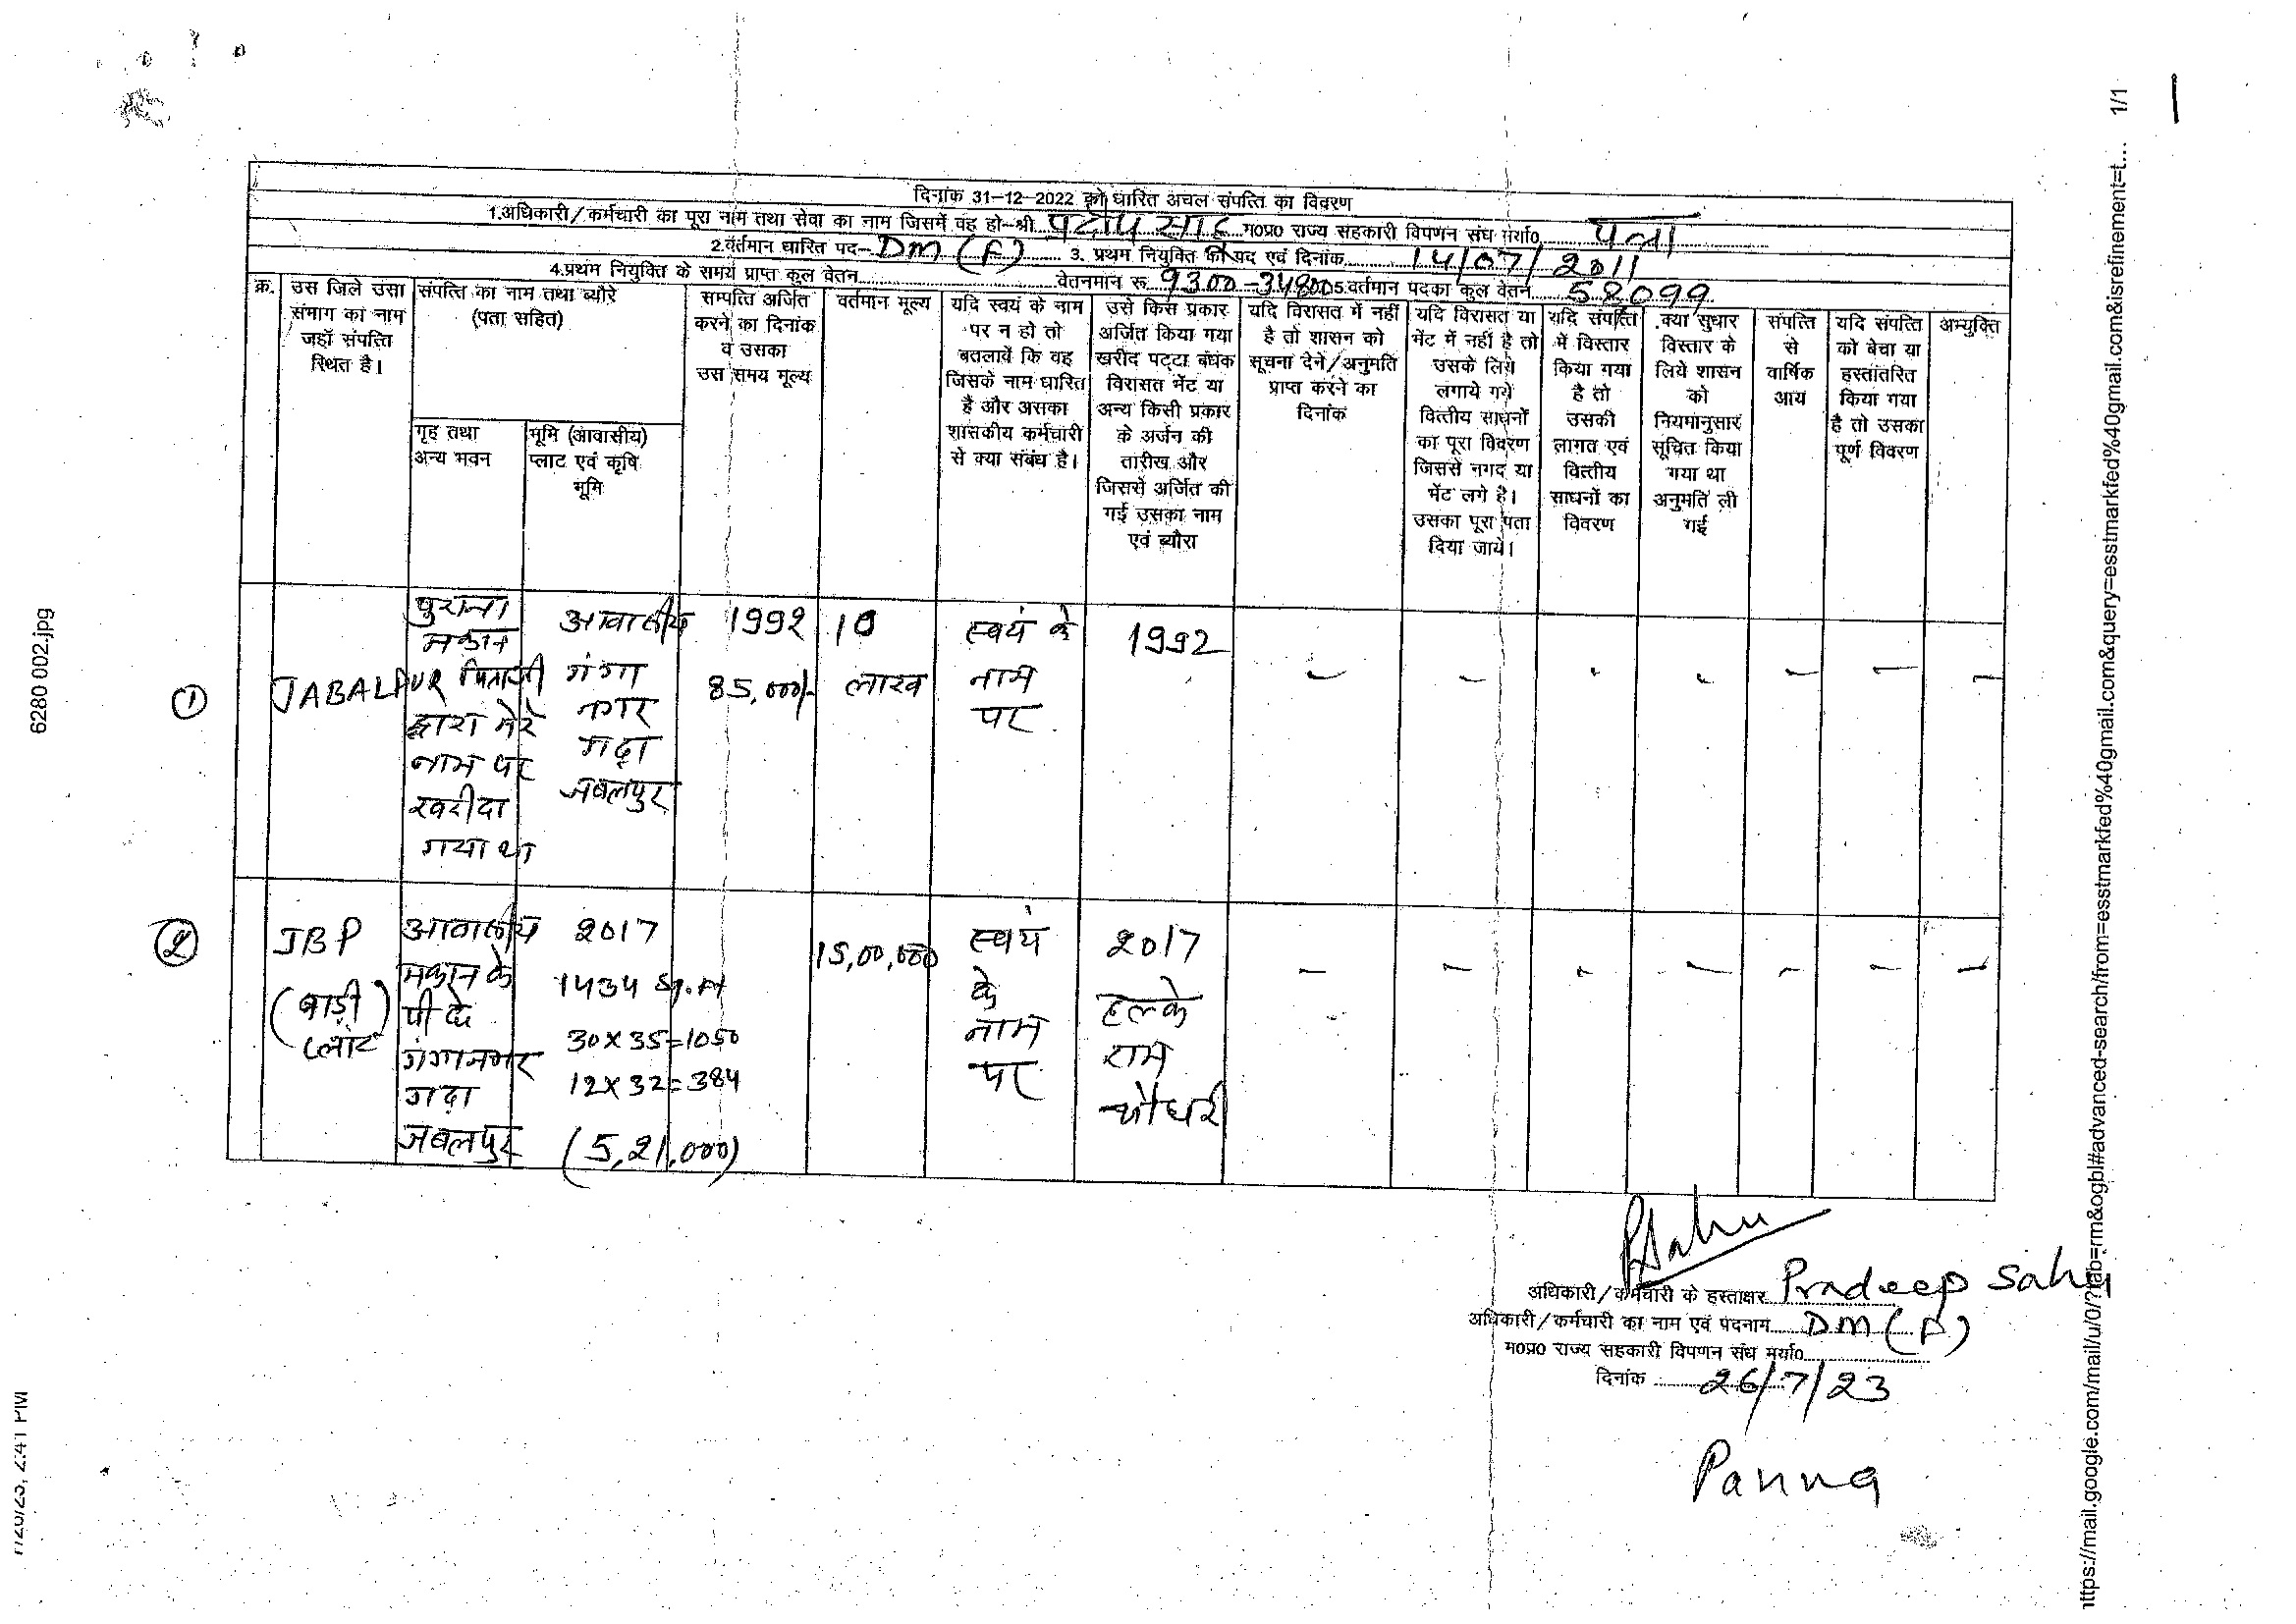 दिनांक 31-12-2022 को धारित अचल संपत्ति का विवरण
1.अधिकारी/कर्मचारी का पूरा नाम तथा सेवा का नाम जिसमें वह हो-श्री प्रदीप साहू म०प्र० राज्य सहकारी विपणन संघ मर्या० पन्ना
2.वर्तमान धारित पद- DM (F) 3. प्रथम नियुक्ति की पद एवं दिनांक 14/07/2011
4.प्रथम नियुक्ति के समय प्राप्त कुल वेतन वेतनमान रू 9300-34800 5.वर्तमान पदका कुल वेतन 58099
क्र.
उस जिले उसा
संभाग का नाम
जहाँ संपत्ति
स्थित है।
संपत्ति का नाम तथा ब्यौरे
(पता सहित)
गृह तथा
अन्य भवन
भूमि (आवासीय)
प्लाट एवं कृषि
भूमि
सम्पत्ति अर्जित
करने का दिनांक
व उसका
उस समय मूल्य
वर्तमान मूल्य
यदि स्वयं के नाम
पर न हो तो
बतलावें कि वह
जिसके नाम धारित
है और असका
शासकीय कर्मचारी
से क्या संबंध है।
उसे किस प्रकार
अर्जित किया गया
खरीद पट्टा बंधक
विरासत भेंट या
अन्य किसी प्रकार
के अर्जन की
तारीख और
जिससे अर्जित की
गई उसका नाम
एवं ब्यौरा
यदि विरासत में नहीं
है तो शासन को
सूचना देने/अनुमति
प्राप्त करने का
दिनांक
यदि विरासत या
भेंट में नहीं है तो
उसके लिये
लगाये गये
वित्तीय साधनों
का पूरा विवरण
जिससे नगद या
भेंट लगे है।
उसका पूरा पता
दिया जाये।
यदि संपत्ति
में विस्तार
किया गया
है तो
उसकी
लागत एवं
वित्तीय
साधनों का
विवरण
क्या सुधार
विस्तार के
लिये शासन
को
नियमानुसार
सूचित किया
गया था
अनुमति ली
गई
संपत्ति
से
वार्षिक
आय
यदि संपत्ति
को बेचा या
हस्तांतरित
किया गया
है तो उसका
पूर्ण विवरण
अभ्युक्ति
①
JABALPUR
पुराना
मकान
पिताजी
द्वारा मेरे
नाम पर
खरीदा
गया था
आवासीय
गंगा
नगर
गढ़ा
जबलपुर
1992
85,000/-
10
लाख
स्वयं के
नाम
पर
1992
- - - - - - -
②
JBP
(बाड़ी)
प्लॉट
आवासीय
मकान के
पीछे
गंगानगर
गढ़ा
जबलपुर
2017
1434 Sq.ft
30x35=1050
12x32=384
(5,21,000)
15,00,000
स्वयं
के
नाम
पर
2017
हल्के
राम
चौधरी
- - - - - - -
PSahu
अधिकारी/कर्मचारी के हस्ताक्षर Pradeep Sahu
अधिकारी/कर्मचारी का नाम एवं पदनाम DM (F)
म०प्र० राज्य सहकारी विपणन संघ मर्या०
दिनांक 26/7/23
Panna
6280 002.jpg
https://mail.google.com/mail/u/0/?tab=rm&ogbl#advanced-search/from=esstmarkfed%40gmail.com&query=esstmarkfed%40gmail.com&isrefinement=t… 1/1